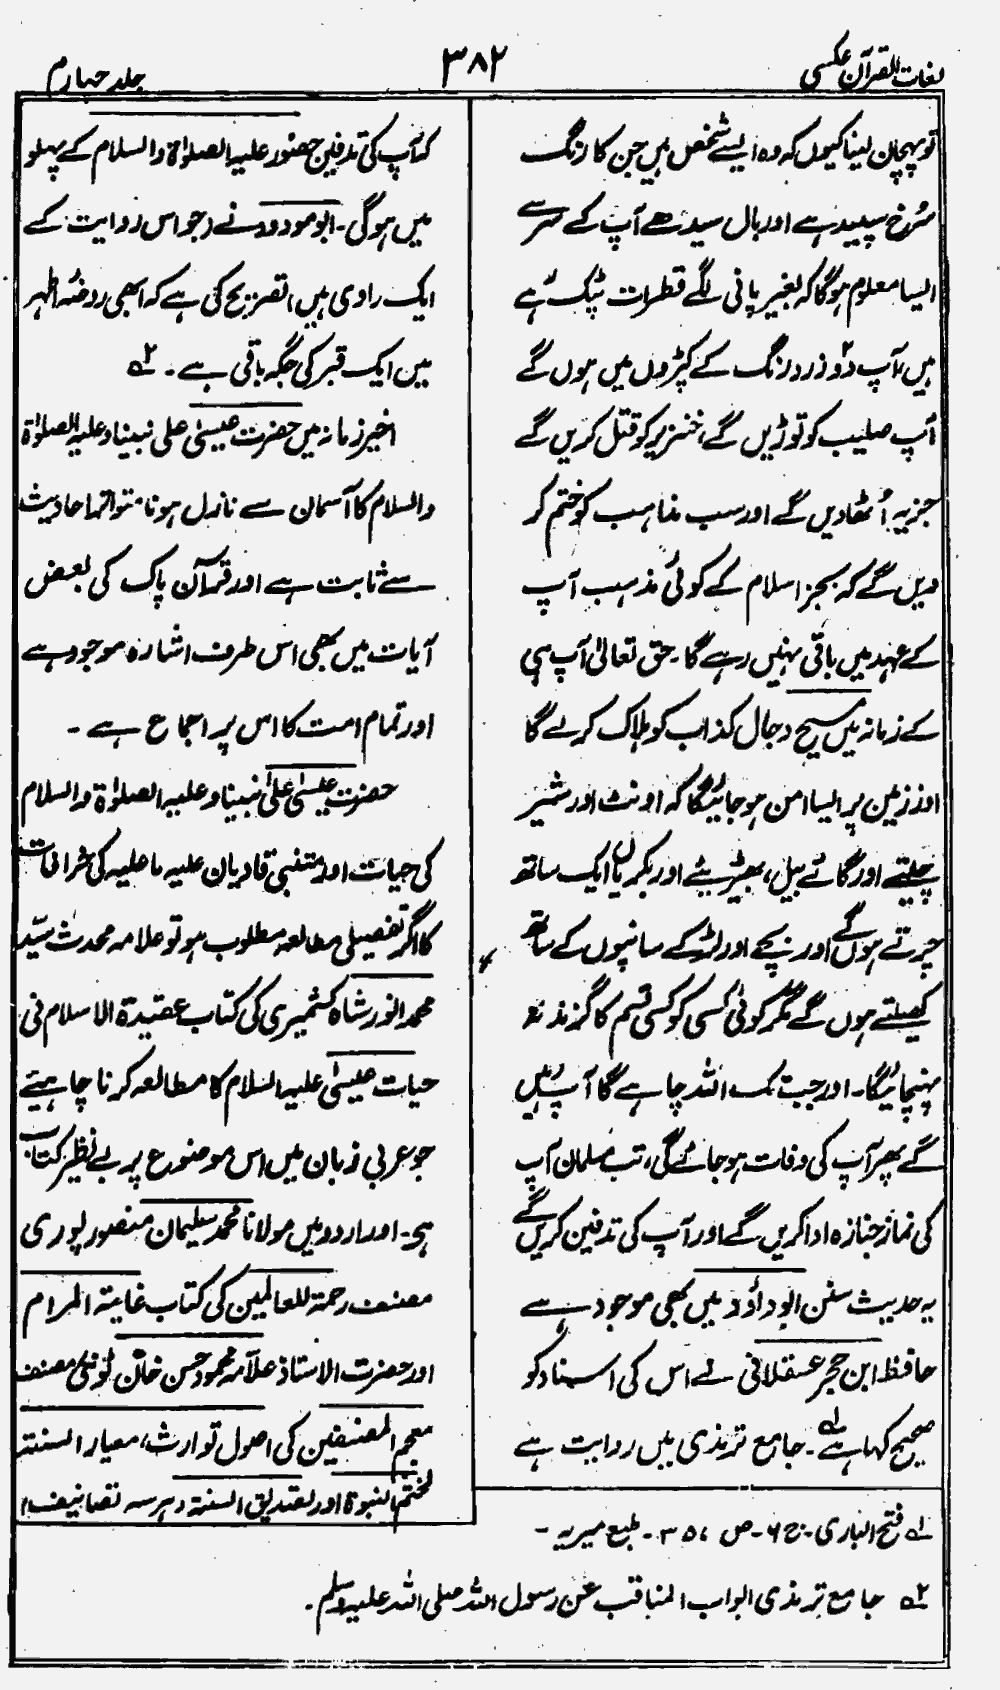 لغات القرآن عکسی
۳۸۲
جلد چہارم
تو پہچان لینا کیوں کہ وہ ایسے شخص ہیں جن کا رنگ
سُرخ سپید ہے اور بال سیدھے آپ کے سر سے
ایسا معلوم ہوگا کہ بغیر پانی لگے قطرات ٹپک رہے
ہیں، آپ دو زرد رنگ کے کپڑوں میں ہوں گے
آپ صلیب کو توڑیں گے، خنزیر کو قتل کریں گے
جزیہ اُٹھادیں گے اور سب مذاہب کو ختم کر
دیں گے کہ بجز اسلام کے کوئی مذہب آپ
کے عہد میں باقی نہیں رہے گا۔ حق تعالیٰ آپ ہی
کے زمانہ میں مسیح دجال کذاب کو ہلاک کرے گا
اور زمین پر ایسا امن ہوجائیگا کہ اونٹ اور شیر
چیتے اور گائے بیل، بھیڑیئے اور بکریاں ایک ساتھ
چرتے ہوں گے اور بچے اور لڑکے سانپوں کے ساتھ
کھیلتے ہوں گے مگر کوئی کسی کو کسی قسم کا گزند نہ
پہنچائیگا۔ اور جب تک اللہ چاہے گا آپ رہیں
گے پھر آپ کی وفات ہوجائے گی، تب مسلمان آپ
کی نماز جنازہ ادا کریں گے اور آپ کی تدفین کریں گے
یہ حدیث سنن ابوداؤد میں بھی موجود ہے
حافظ ابن حجر عسقلانی نے اس کی اسناد کو
صحیح کہا ہے ۱؎۔ جامع ترمذی میں روایت ہے
کہ آپ کی تدفین حضور علیہ الصلوٰۃ والسلام کے پہلو
میں ہوگی۔ ابومودود نے (جو اس روایت کے
ایک راوی ہیں) تصریح کی ہے کہ ابھی روضۂ اطہر
میں ایک قبر کی جگہ باقی ہے۔ ۲؎
اخیر زمانہ میں حضرت عیسیٰ علی نبینا وعلیہ الصلوٰۃ
والسلام کا آسمان سے نازل ہونا متواتر احادیث
سے ثابت ہے اور قرآن پاک کی بعض
آیات میں بھی اس طرف اشارہ موجود ہے
اور تمام امت کا اس پر اجماع ہے۔
حضرت عیسیٰ علیٰ نبینا وعلیہ الصلوٰۃ والسلام
کی حیات اور متنبی قادیان علیہ ما علیہ کی خرافات
کا اگر تفصیلی مطالعہ مطلوب ہو تو علامہ محدث سیّد
محمد انور شاہ کشمیری کی کتاب عقیدۃ الاسلام فی
حیات عیسیٰ علیہ السلام کا مطالعہ کرنا چاہیئے
جو عربی زبان میں اس موضوع پر بے نظیر کتاب
ہی۔ اور اردو میں مولانا محمد سلیمان منصور پوری
مصنف رحمۃ للعالمین کی کتاب غایۃ المرام
اور حضرت الاستاذ علامہ محمود حسن خاں ٹونکی مصنف
معجم المصنفین کی اصول توارث، معیار السنتہ
لختم النبوۃ اور تصدیق السنۃ (ہر سہ تصانیف)
۱؎ فتح الباری۔ ج ۶۔ ص ۳۵۷۔ طبع میریہ۔
۲؎ جامع ترمذی ابواب المناقب عن رسول اللہ صلی اللہ علیہ وسلم۔